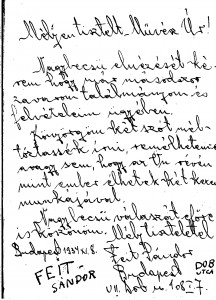 Mélyen tisztelt Művész Úr!
Nagybecsű elnézését ké-
rem hogy már másodszor
zavarom találmányom és
felvételem ügyében.
Könyörgöm két szót mél-
tóztassék írni, remélhetem-e
avagy sem, hogy az Ön révén
mint ember élhetek két kezem
munkájával.
Nagybecsű válaszát előre
is köszönöm. Mély tisztelettel
Budapest 1934 XI. 8. Feit Sándor
FEIT Budapest DOB
SÁNDOR UTCA
VII. Dob u. 108 I. 7.